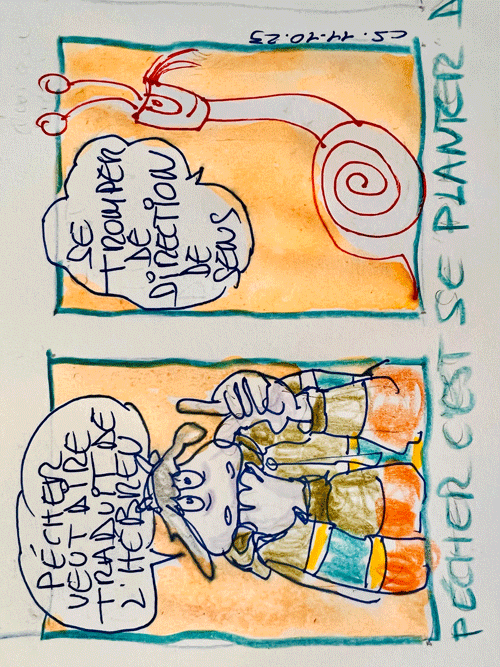 PÉCHER
VEUT DIRE
TRADUIT DE
L'HÉBREU
SE
TROMPER
DE
DIRECTION
DE
SENS
PÉCHER C'EST SE PLANTER